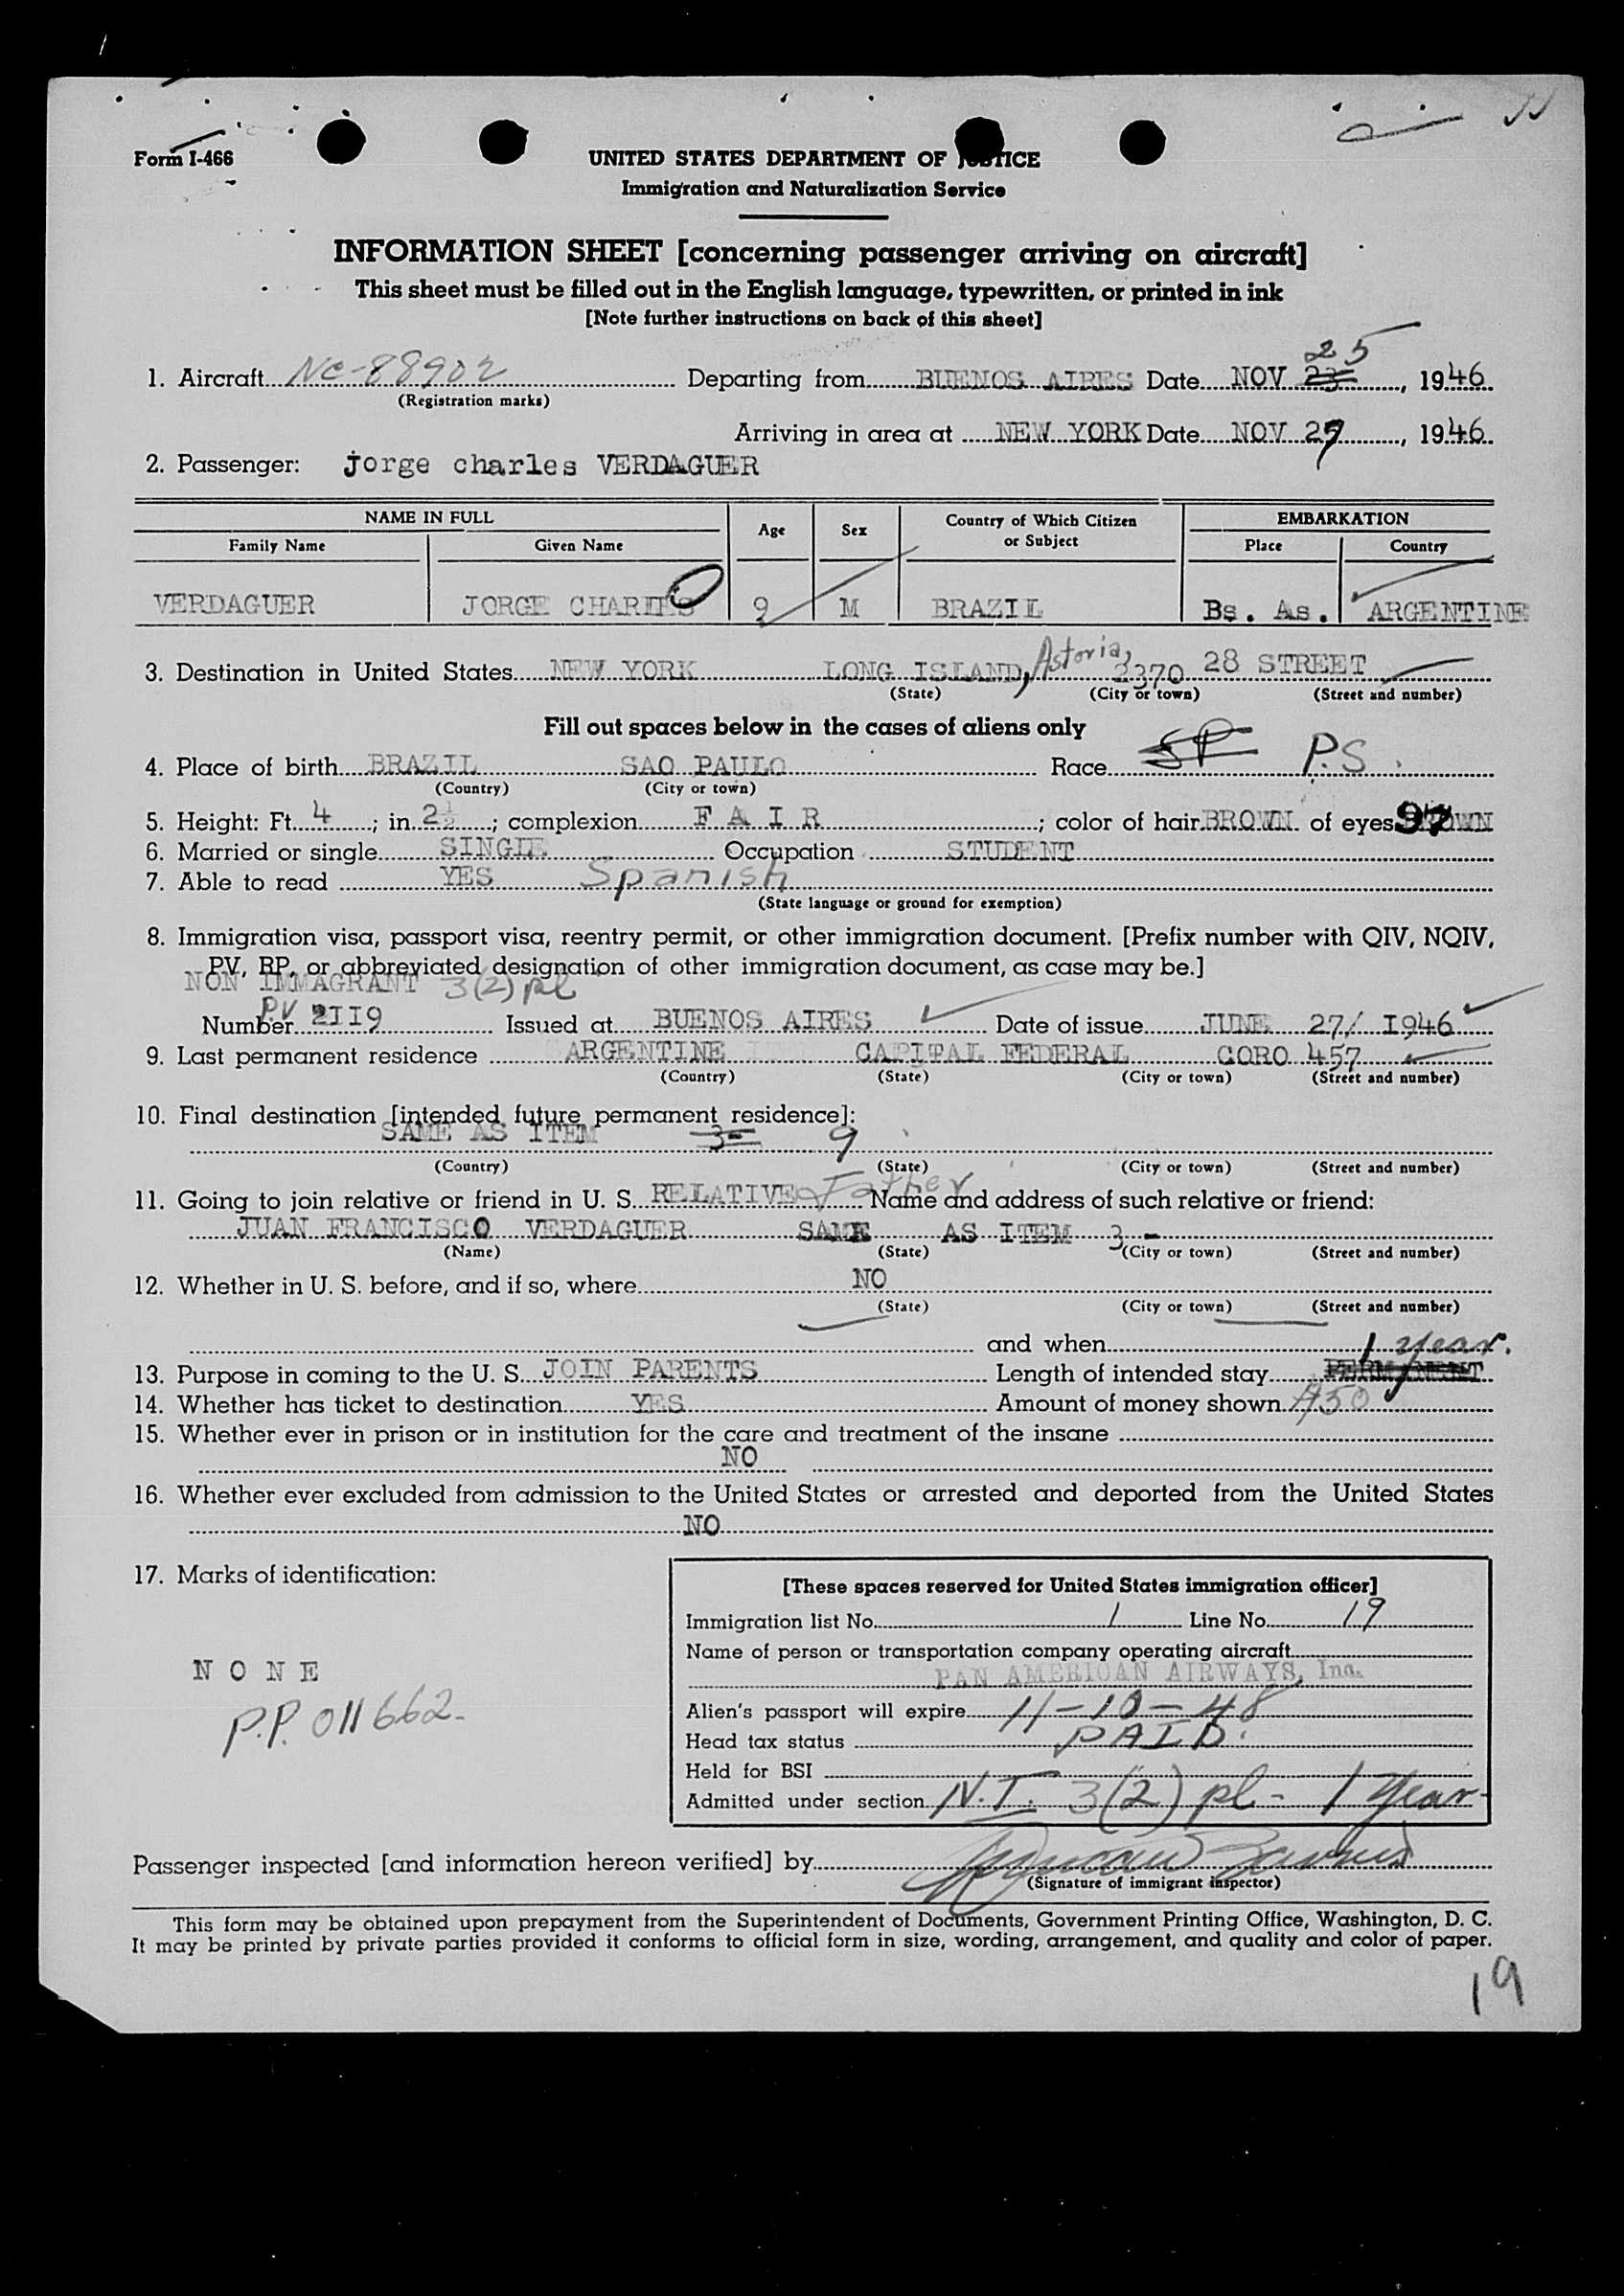 Form I-466
UNITED STATES DEPARTMENT OF JUSTICE
Immigration and Naturalization Service
INFORMATION SHEET [concerning passenger arriving on aircraft]
This sheet must be filled out in the English language, typewritten, or printed in ink
[Note further instructions on back of this sheet]
1. Aircraft NC-88902 Departing from BUENOS AIRES Date NOV 23 25, 1946
(Registration marks)
Arriving in area at NEW YORK Date NOV 27, 1946
2. Passenger: jorge charles VERDAGUER
NAME IN FULL Age Sex Country of Which Citizen or Subject EMBARKATION
Family Name Given Name Place Country
VERDAGUER JORGE CHARLES 9 M BRAZIL Bs. As. ARGENTINE
3. Destination in United States NEW YORK LONG ISLAND, Astoria, 2370 28 STREET
(State) (City or town) (Street and number)
Fill out spaces below in the cases of aliens only
4. Place of birth BRAZIL SAO PAULO Race SP P.S.
(Country) (City or town)
5. Height: Ft. 4; in. 2½; complexion F A I R; color of hair BROWN of eyes BROWN 97
6. Married or single SINGLE Occupation STUDENT
7. Able to read YES Spanish
(State language or ground for exemption)
8. Immigration visa, passport visa, reentry permit, or other immigration document. [Prefix number with QIV, NQIV,
PV, RP, or abbreviated designation of other immigration document, as case may be.]
NON IMMAGRANT 3(2) pl
Number PV 2II9 Issued at BUENOS AIRES Date of issue JUNE 27/ I946
9. Last permanent residence ARGENTINE CAPITAL FEDERAL CORO 457
(Country) (State) (City or town) (Street and number)
10. Final destination [intended future permanent residece]:
SAME AS ITEM 3- 9
(Country) (State) (City or town) (Street and number)
11. Going to join relative or friend in U. S. RELATIVE Father Name and address of such relative or friend:
JUAN FRANCISCO VERDAGUER SAME AS ITEM 3 -
(Name) (State) (City or town) (Street and number)
12. Whether in U. S. before, and if so, where NO
(State) (City or town) (Street and number)
and when 1 year.
13. Purpose in coming to the U. S. JOIN PARENTS Length of intended stay PERMANENT
14. Whether has ticket to destination YES Amount of money shown $50
15. Whether ever in prison or in institution for the care and treatment of the insane
NO
16. Whether ever excluded from admission to the United States or arrested and deported from the United States
NO
17. Marks of identification:
N O N E
P.P. 011662-
[These spaces reserved for United States immigration officer]
Immigration list No. 1 Line No. 19
Name of person or transportation company operating aircraft
PAN AMERICAN AIRWAYS, Inc.
Alien's passport will expire 11-10-48
Head tax status PAID.
Held for BSI
Admitted under section N.I. 3(2) pl- 1 Year-
Passenger inspected [and information hereon verified] by
(Signature of immigrant inspector)
This form may be obtained upon prepayment from the Superintendent of Documents, Government Printing Office, Washington, D. C.
It may be printed by private parties provided it conforms to official form in size, wording, arrangement, and quality and color of paper.
19